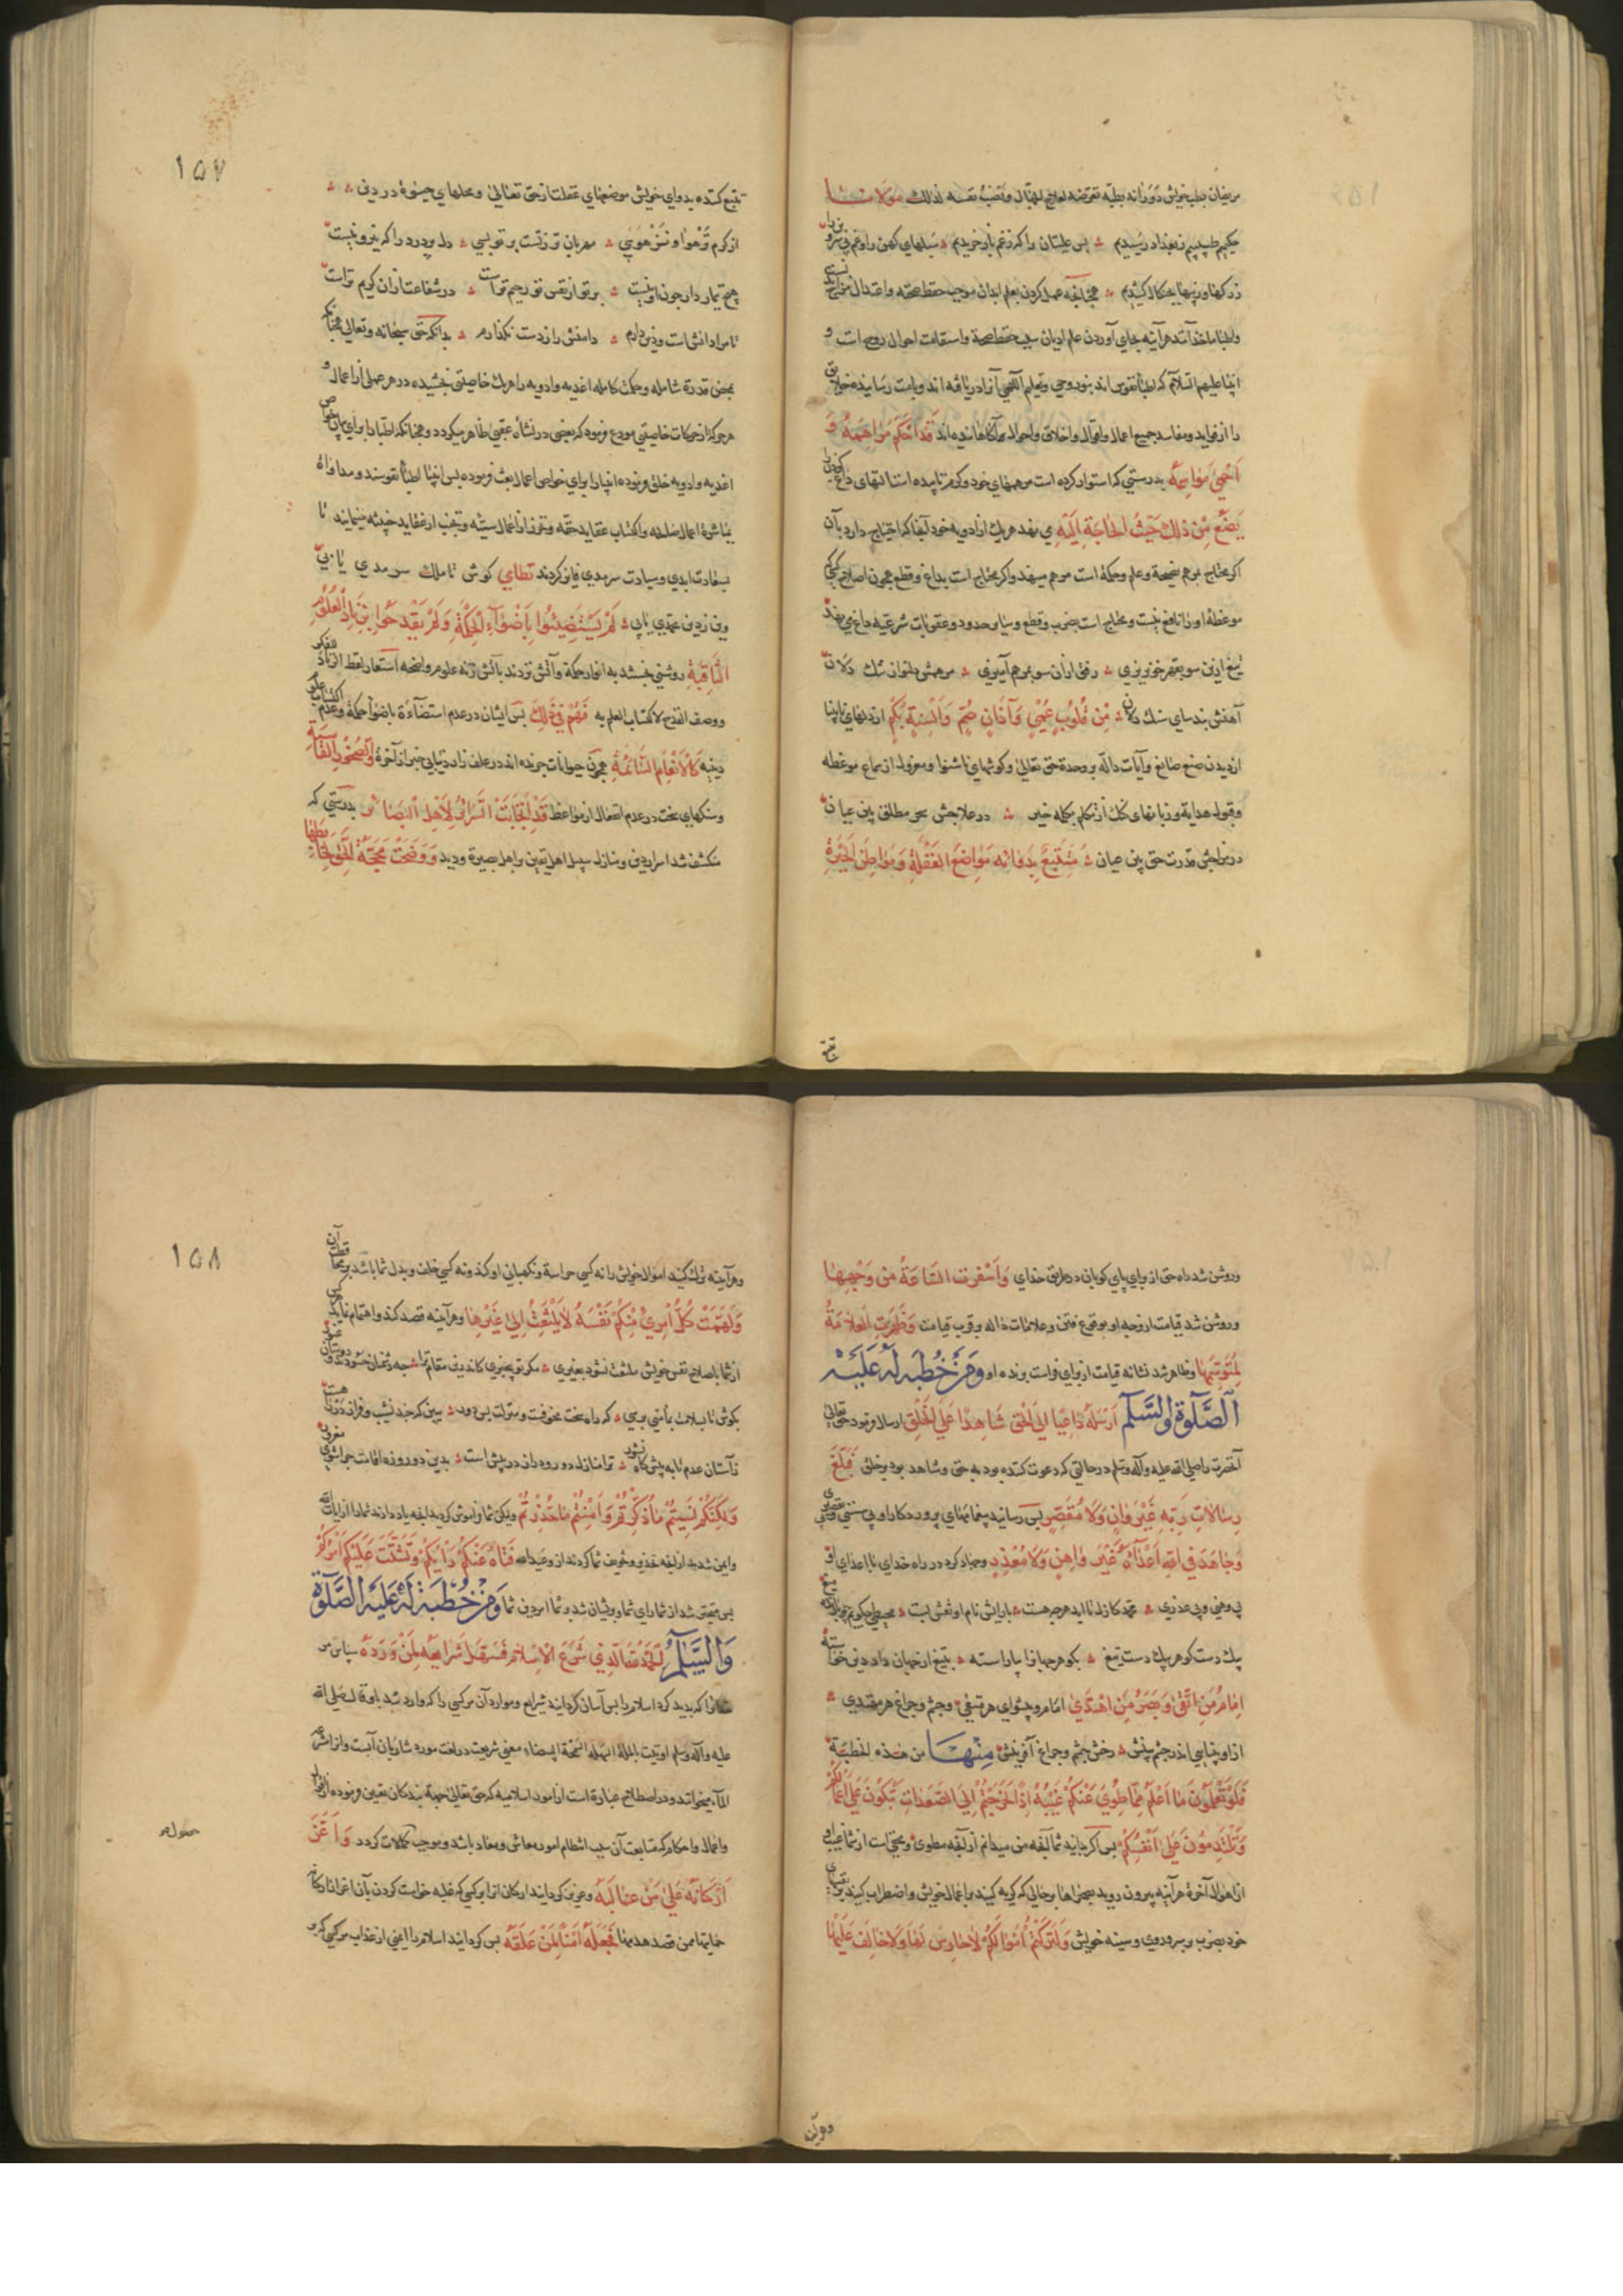 مریضان بطب خویش
حکیم طبیبیم ز بغداد رسیدیم ؞ بس علیلان را که ز غم باز خریدیم ؞ سبلهای کهن را
عمل کردن بعلم ابدان موجب حفظ صحته و اعتدال
علم ادیان سبب حفظ صحة و استقامت احوال روح است و
انبیا علیهم السلام که اطباء نفوس اند
را از فواید و مفاسد جمیع اعمال و اقوال و اخلاق و احوال قَدْ اَحْکَمَ مَرَاهِمَهُ وَ
اَحْمیٰ مَوَاسِمَهُ بدرستی که استوار کرده است مرهمهای خود و
یَضَعُ مِنْ ذٰلِكَ حَیْثُ الْحَاجَةِ اِلَیْهِ می نهد هر یك از ادویه خود آنجا که احتیاج دارد بآن
اکر محتاج بمرهم نصیحة و علم و حکمة است مرهم مینهد و اکر محتاج است بداغ و قطع
موعظه او را نافع نیست و محتاج است بضرب و قطع و سایر حدود و عقوبات شرعیه داغ می نهد
تیغ ازین سو بقهر خونریزی ؞ رفق ازان سو بمرهم آمیزی ؞ مرهمش دلنواز تنك دلان
آهنش بند سای سنك دلان ؞ مِنْ قُلُوبٍ عُمْیٍ وَ آذَانٍ صُمٍّ وَ اَلْسِنَةٍ بُکْمٍ از دلهای نابینا
از دیدن صنع صانع و آیات داله بر وحدة حق تعالی و کوشهای ناشنوا و معزول از سماع موعظه
و قبول هدایة و زبانهای کنك از تکلم بکلمه خیر ؞ در علاجش سحر مطلق بین عیان
در مزاجش قدرت حق بین عیان ؞ مُتَتَبِّعٌ بِدَوَائِهِ مَوَاضِعَ الْغَفْلَةِ وَ مَوَاطِنَ الْحَیْرَةِ
تتبع
۱۵۷
تتبع کننده بدوای خویش موضعهای غفلت از حق تعالی و محلهای حیوة در دین ؞ ؞
از کرم مهربان تو زتست بر تو بسی ؞ دل پر درد را که نیرو نیست
هیچ تیمار دار چون او نیست ؞ بر تو از نفس تو رحیم تر است ؞ در شفاعت ازان کریم تر است
تا مرا دانش است و دین دارم ؞ دامنش را ز دست نکذارم ؞ بدانکه حق سبحانه و تعالی
بمحض قدرة شامله و حکمت کامله اغذیه و ادویه را هر یك خاصیتی بخشیده در هر عملی از اعمال و
هر حرکة از حرکات خاصیتی مودع فرمود که بعضی در نشأه عقبی ظاهر میکردد و همچنانکه اطبا را برای بیان خواص
اغذیه و ادویه خلق فرموده انبیا را برای خواص اعمال بعث فرموده پس انبیا اطباء نفوسند و مداواة
بمباشرة اعمال صالحه و اکتساب عقاید حقه و تحرز از اعمال سیئه و تجنب از عقاید خبیثه مینمایند تا
بسعادت ابدی و سیادت سرمدی فایز کردند کوش تا ملك سرمدی یابی
لَمْ یَسْتَضِیئُوا بِاَضْوَآءِ الْحِکْمَةِ وَ لَمْ یَقْدَحُوا بِزِنَادِ الْعُلُومِ
الثَّاقِبَةِ روشنی نجستند به انوار حکمة و آتش نزدند بآتش زنه علوم واضحه استعار لفظ الزناد
و وصف القدح لاکتساب العلم به فَهُمْ فِی ذٰلِكَ پس ایشان در عدم استضاءة باضواء حکمة و عدم
کَالْاَنْعَامِ السَّائِمَةِ همچون حیوانات چرنده اند در علف زار دنیا بی خبر از آخرة وَ الصُّخُورِ الْقَاسِیَةِ
و سنکهای سخت در عدم انفعال از مواعظ قَدْ اِنْجَابَتْ السَّرَائِرُ لِاَهْلِ الْبَصَائِرِ بدرستی که
منکشف شد اسرار دین و منازل سبیل اهل یقین بر اهل بصیرة و دید وَ وَضَحَتْ مَحَجَّةُ الْحَقِّ لِخَابِطِهَا
و روشن شد راه حق از برای پای کوبان در طریق خدای وَ اَسْفَرَتِ السَّاعَةُ مِنْ وَجْهِهَا
و روشن شد قیامت از وجه او بوقوع فتن و علامات داله بر قرب قیامت وَ ظَهَرَتِ الْعَلَامَةُ
لِمُتَوَسِّمِهَا و ظاهر شد نشانه قیامت از برای فراست برنده او وَ مِنْ خُطْبَةٍ لَهُ عَلَیْهِ
الصَّلٰوةُ وَ السَّلَامُ اَرْسَلَهُ دَاعِیًا اِلَی الْحَقِّ شَاهِدًا عَلَی الْخَلْقِ ارسال فرمود حق تعالی
آنحضرت را صلی الله علیه و آله و سلم در حالتی که دعوت کننده بود به حق و شاهد بود بر خلق فَبَلَّغَ
رِسَالَاتِ رَبِّهِ غَیْرَ وَانٍ وَ لَا مُقَصِّرٍ پس رسانید پیغامهای پروردکار او بی سستی و
وَ جَاهَدَ فِی اللّٰهِ اَعْدَآئَهُ غَیْرَ وَاهِنٍ وَ لَا مُعَذِّرٍ و جهاد کرد در راه خدای با اعدای او
بی وهنی و بی عذری ؞ محمد کازل تا ابد هر چه هست ؞ بارایش نام او نقش بست ؞
یك دست کوهر بیك دست تیغ ؞ بکوهر جهانرا بیاراسته ؞ بتیغ از جهان داد دین خواسته
اِمَامُ مَنِ اتَّقٰی وَ بَصَرُ مَنِ اهْتَدٰی امام و پیشوای هر متقی و چشم و چراغ هر مهتدی ؞
از او بینایی اندر چشم بینش ؞ رخش چشم و چراغ آفرینش مِنْهَا من هذه الخطبة
فَلَوْ تَعْلَمُونَ مَا اَعْلَمُ مِمَّا طُوِیَ عَنْکُمْ غَیْبُهُ اِذًا لَخَرَجْتُمْ اِلَی الصُّعُدَاتِ تَبْکُونَ عَلٰی اَعْمَالِکُمْ
وَ تَلْتَدِمُونَ عَلٰی اَنْفُسِکُمْ پس اکر بدانید شما آنچه من میدانم از آنچه مطوی و مختفی است از شما غیب او
از اهوال آخرة هر آینه بیرون روید بصحراها بر حالی که کریه کنید بر اعمال خویش و اضطراب کنید
خود بضرب بر سر و روی و سینه خویش وَ لَتَرَکْتُمْ اَمْوَالَکُمْ لَا حَارِسَ لَهَا وَ لَا خَالِفَ عَلَیْهَا
و هر آینه
۱۵۸
و هر آینه ترك کنید اموال خویش را نه کسی حراسة و نکهبانی او کند و نه کسی خلف و بدل شما باشد
وَ لَهَمَّتْ کُلَّ امْرِئٍ مِنْکُمْ نَفْسُهُ لَا یَلْتَفِتُ اِلٰی غَیْرِهَا و هر آینه قصد کند و اهتمام نماید
از شما باصلاح نفس خویش ملتفت نشود بغیری ؞ مکر تو بیخبری کاندرین مقام ترا ؞ چه دشمنان حسودند و دوستان غیور
بکوش تا بسلامت بمأمنی برسی ؞ که راه سخت مخوفست و منزلت بس دور ؞ ببین که چند نشیب و فراز در راه است
ز آستان عدم تا به پیش کاه نشور ؞ ترا منازل دور و دراز در پیش است ؞ بدین دو روزه اقامت چرا شوی مغرور
وَ لٰکِنَّکُمْ نَسِیتُمْ مَا ذُکِّرْتُمْ وَ اَمِنْتُمْ مَا حُذِّرْتُمْ و لیکن شما فراموش کردید آنچه یاد دادند شما را از آیات الله
و ایمن شدید از آنچه تحذیر و تخویف شما کردند از وعید الله فَتَاهَ عَنْکُمْ رَأْیُکُمْ وَ تَشَتَّتَ عَلَیْکُمْ اَمْرُکُمْ
پس متحیر شد از شما رای شما و پریشان شد بر شما امر دین شما وَ مِنْ خُطْبَةٍ لَهُ عَلَیْهِ الصَّلٰوةُ
وَ السَّلَامُ اَلْحَمْدُ لِلّٰهِ الَّذِی شَرَعَ الْاِسْلَامَ فَسَهَّلَ شَرَایِعَهُ لِمَنْ وَرَدَهُ سپاس مر
که پدید کرد اسلام را پس آسان کردانید شرایع و موارد آن مر کسی را که وارد شد باو قال صلی الله
علیه و آله و سلم اوتیت بالملة السهلة السمحة البیضاء معنی شریعت در لغت مورد شاربان آبست
الماء میخوانند و در اصطلاح عبارة است از امور اسلامیه که حق تعالی جهة بندکان تعیین فرموده از اقوال
و افعال و احکام که متابعت آن سبب انتظام امور معاش و معاد باشد و موجب کمالات کردد وَ اَعَزَّ
اَرْکَانَهُ عَلٰی مَنْ غَالَبَهُ و عزیز کردانید ارکان انرا بر کسی که غلبه خواست کردن بآن
حمایتها ممن قصد هدمها فَجَعَلَهُ اَمْنًا لِمَنْ عَلَقَهُ پس کردانید اسلام را ایمنی از عذاب مر کسی که